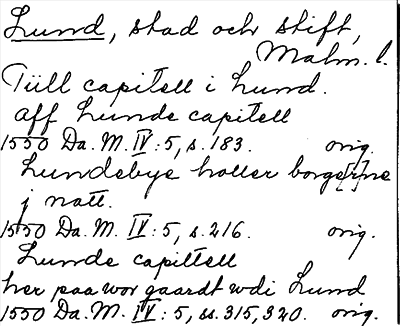 Lund, stad och stift,
Malm. l.
Tüll capitell i Lund.
aff Lunde capitell
1550 Da. M. IV: 5, s. 183. orig.
Lundebye holler borge[r]ne
j natt.
1550 Da. M. IV: 5, s. 216. orig.
Lunde capittell
her paa wor gaardt wdi Lund
1550 Da. M. IV: 5, ss. 315, 320. orig.